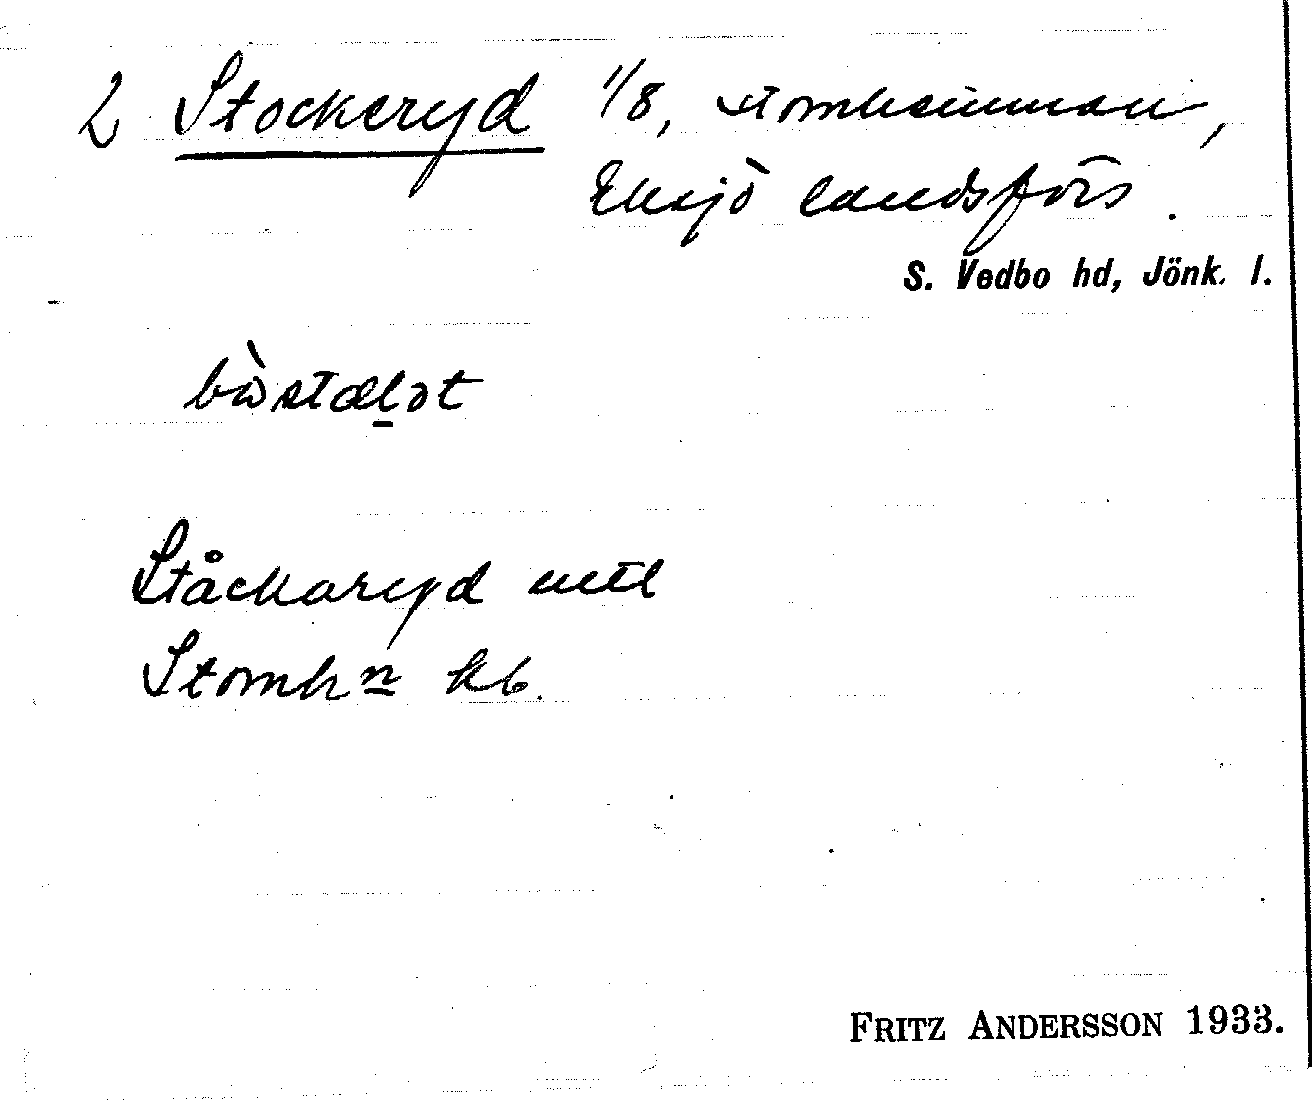 2 Stockeryd 1/8, stomhemman,
Eksjö landsförs.
S. Vedbo hd, Jönk. l.
bòstæḻət
Ståckaryd uttl
Stomhn kb.
FRITZ ANDERSSON 1933.